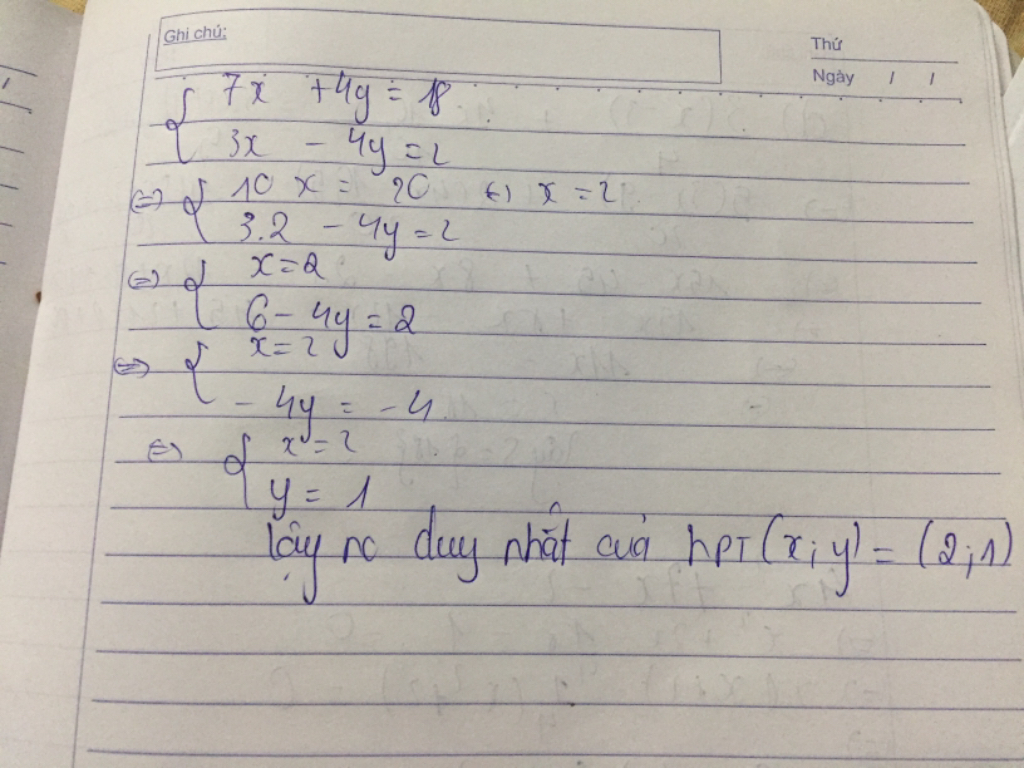 Ghi chú:
Thứ
Ngày / /
{ 7x + 4y = 18
3x - 4y = 2
<=> { 10x = 20 <=> x = 2
3.2 - 4y = 2
<=> { x = 2
6 - 4y = 2
<=> { x = 2
- 4y = -4
<=> { x = 2
y = 1
Vậy no duy nhất của hPT (x; y) = (2; 1)